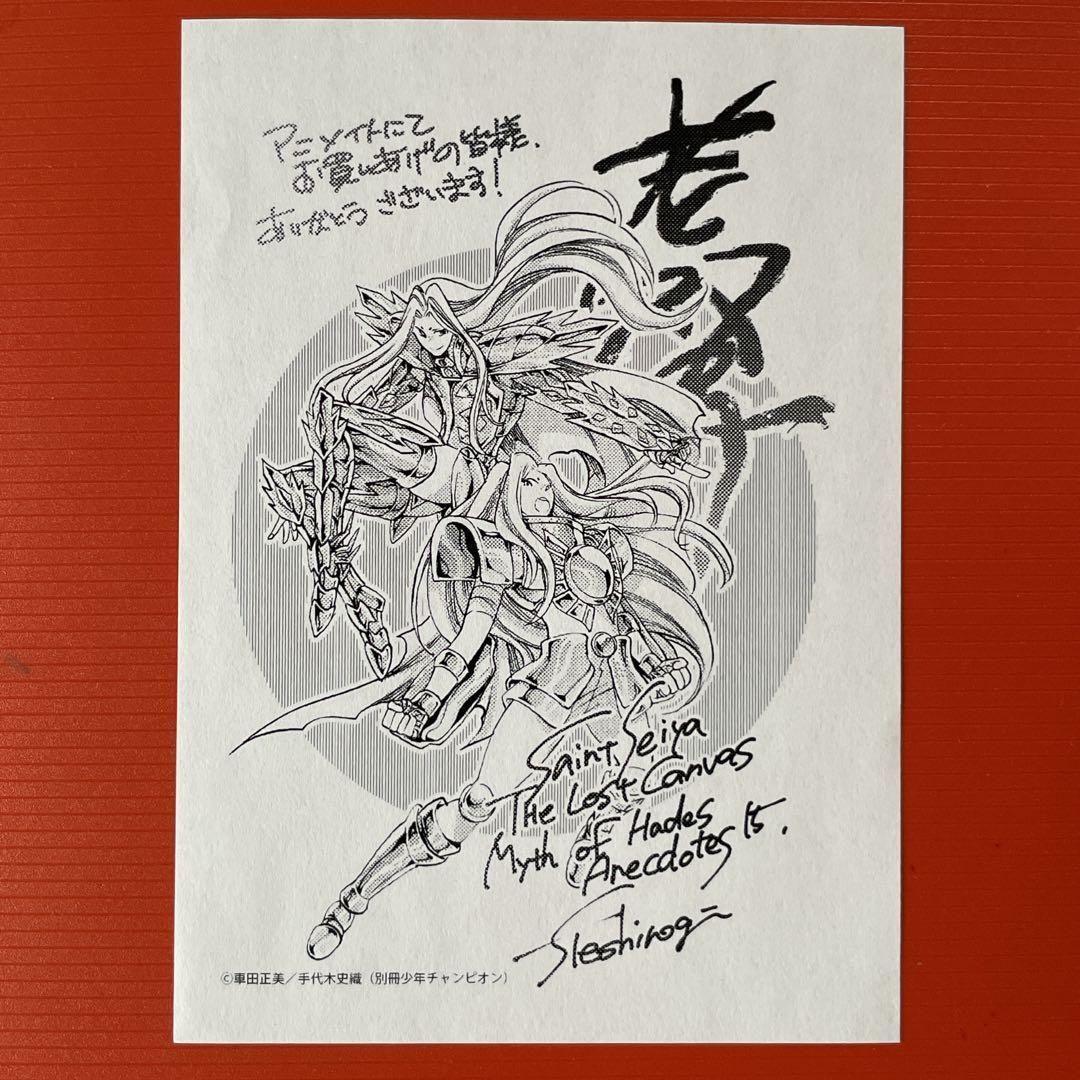 アニメイトにて
お買いあげの皆様、
ありがとうございます！
Saint Seiya
The Lost Canvas
Myth of Hades
Anecdotes 15.
©車田正美／手代木史織（別冊少年チャンピオン）